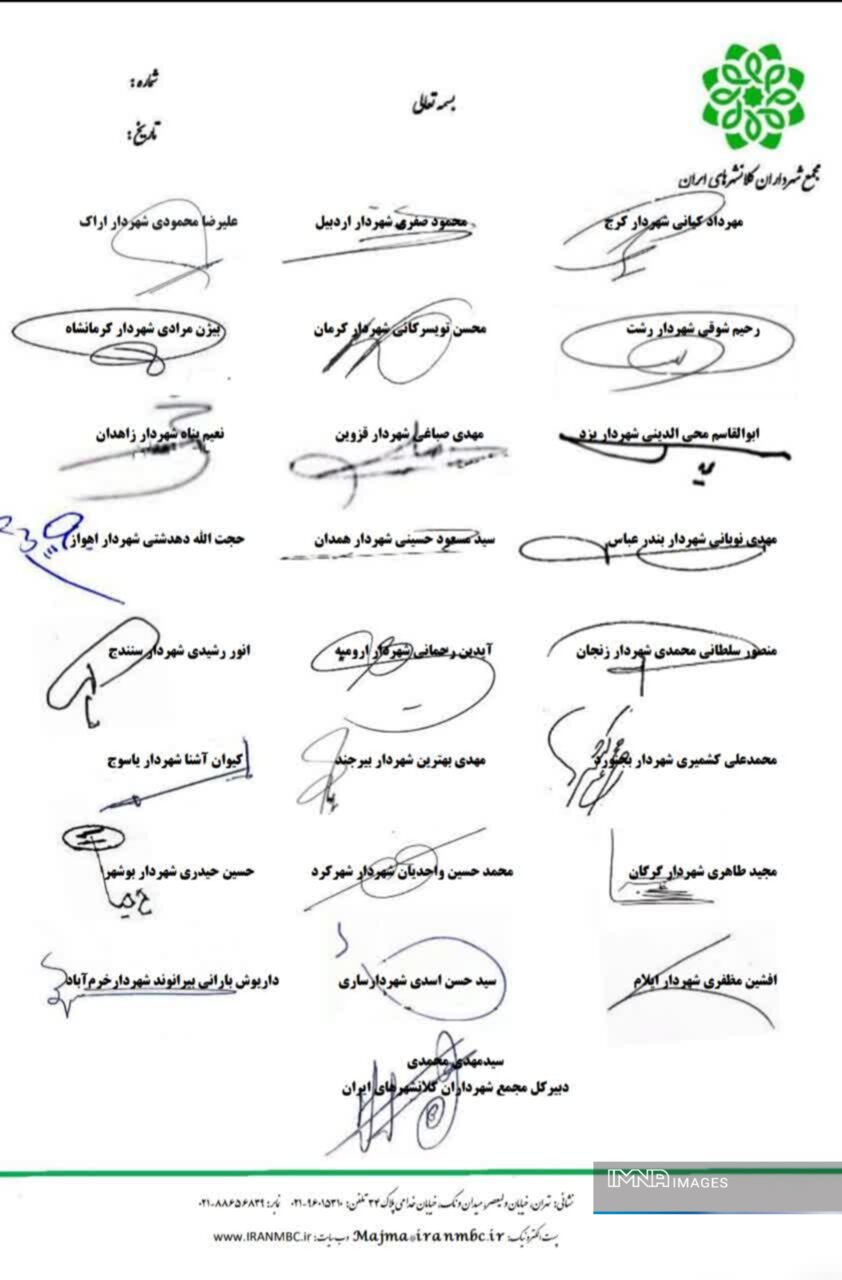 شماره:
بسمه تعالی
تاریخ:
مجمع شهرداران کلانشهرهای ایران
مهرداد کیانی شهردار کرج
محمود صفری شهردار اردبیل
علیرضا محمودی شهردار اراک
رحیم شوقی شهردار رشت
محسن تویسرکانی شهردار کرمان
بیژن مرادی شهردار کرمانشاه
ابوالقاسم محی الدینی شهردار یزد
مهدی صباغی شهردار قزوین
نعیم پناه شهردار زاهدان
مهدی نوبانی شهردار بندر عباس
سید مسعود حسینی شهردار همدان
حجت الله دهدشتی شهردار اهواز
منصور سلطانی محمدی شهردار زنجان
آیدین رحمانی شهردار ارومیه
انور رشیدی شهردار سنندج
محمدعلی کشمیری شهردار بجنورد
مهدی بهترین شهردار بیرجند
کیوان آشنا شهردار یاسوج
مجید طاهری شهردار گرگان
محمد حسین واحدیان شهردار شهرکرد
حسین حیدری شهردار بوشهر
افشین مظفری شهردار ایلام
سید حسن اسدی شهردارساری
داریوش بارانی بیرانوند شهردار خرم‌آباد
سیدمهدی محمدی
دبیرکل مجمع شهرداران کلانشهرهای ایران
IMNA IMAGES
نشانی: تهران، خیابان ولیعصر، میدان ونک، خیابان خدامی پلاک ۳۴ تلفن: ۹۶۰۱۵۳۱۰-۰۲۱ نمابر: ۸۸۶۵۶۸۳۹-۰۲۱
پست الکترونیک: Majma@iranmbc.ir وب سایت: www.IRANMBC.ir